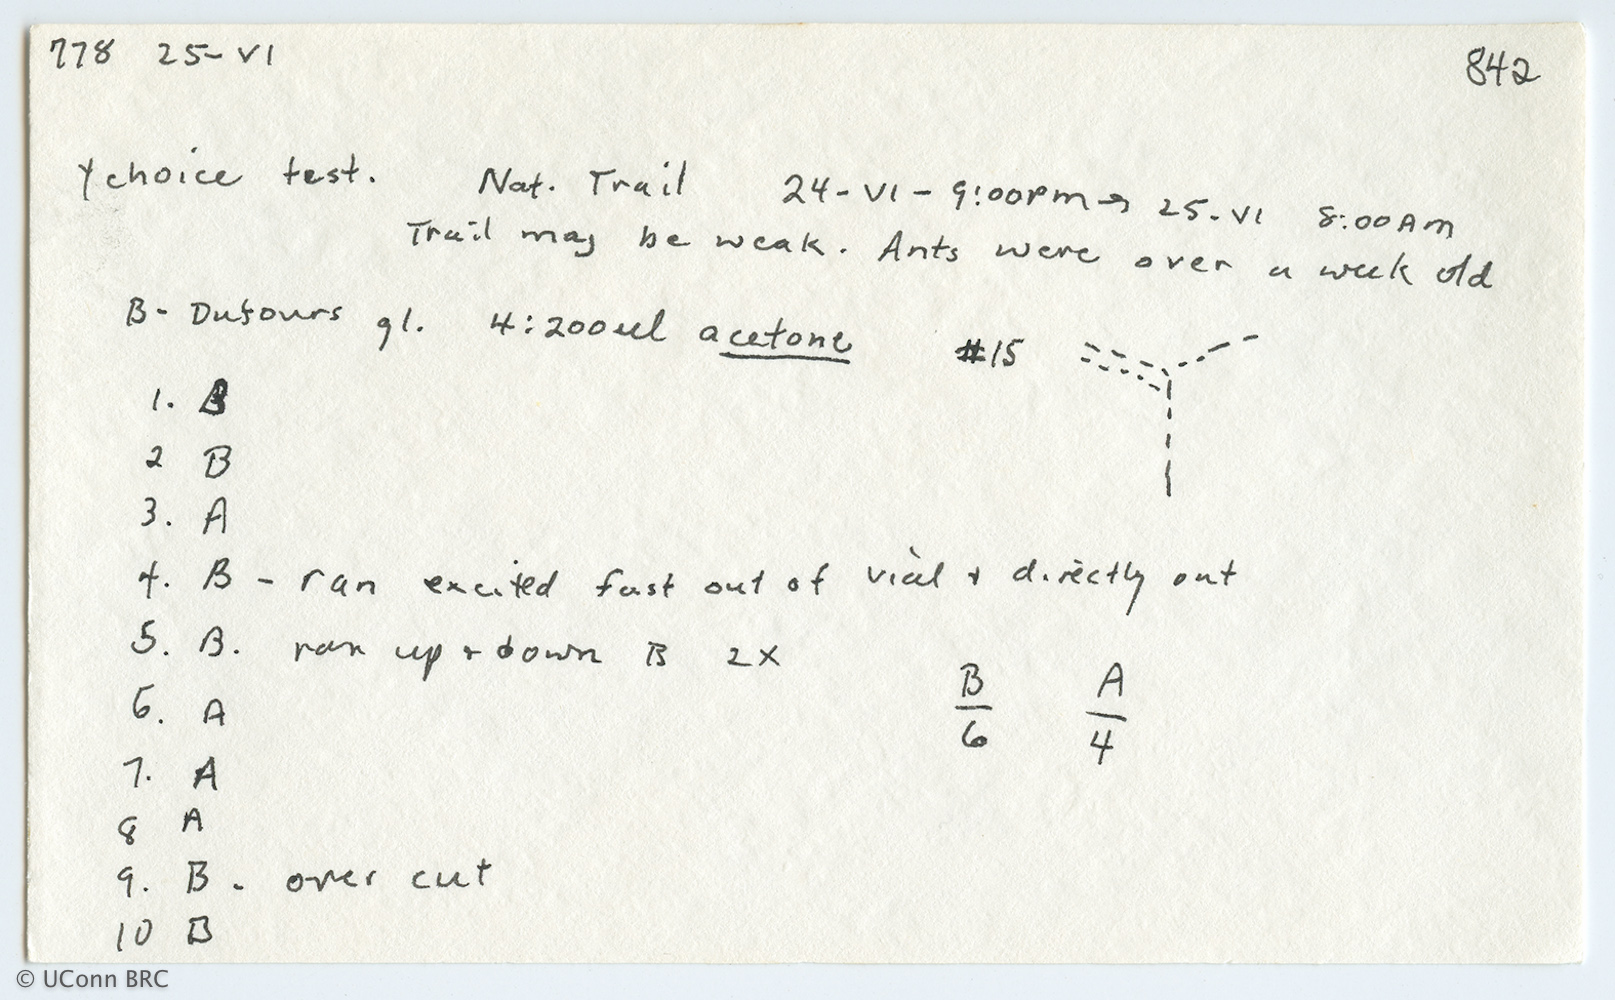 778 25-VI 842
Y choice test. Nat. Trail 24-VI-9:00PM→ 25-VI 8:00AM
Trail may be weak. Ants were over a week old
B- Dufours gl. 4:200ul acetone #15
1. B
2 B
3. A
4. B - ran excited fast out of vial + directly out
5. B. ran up + down B 2X
B A
6 4
6. A
7. A
8 A
9. B. over cut
10 B
© UConn BRC